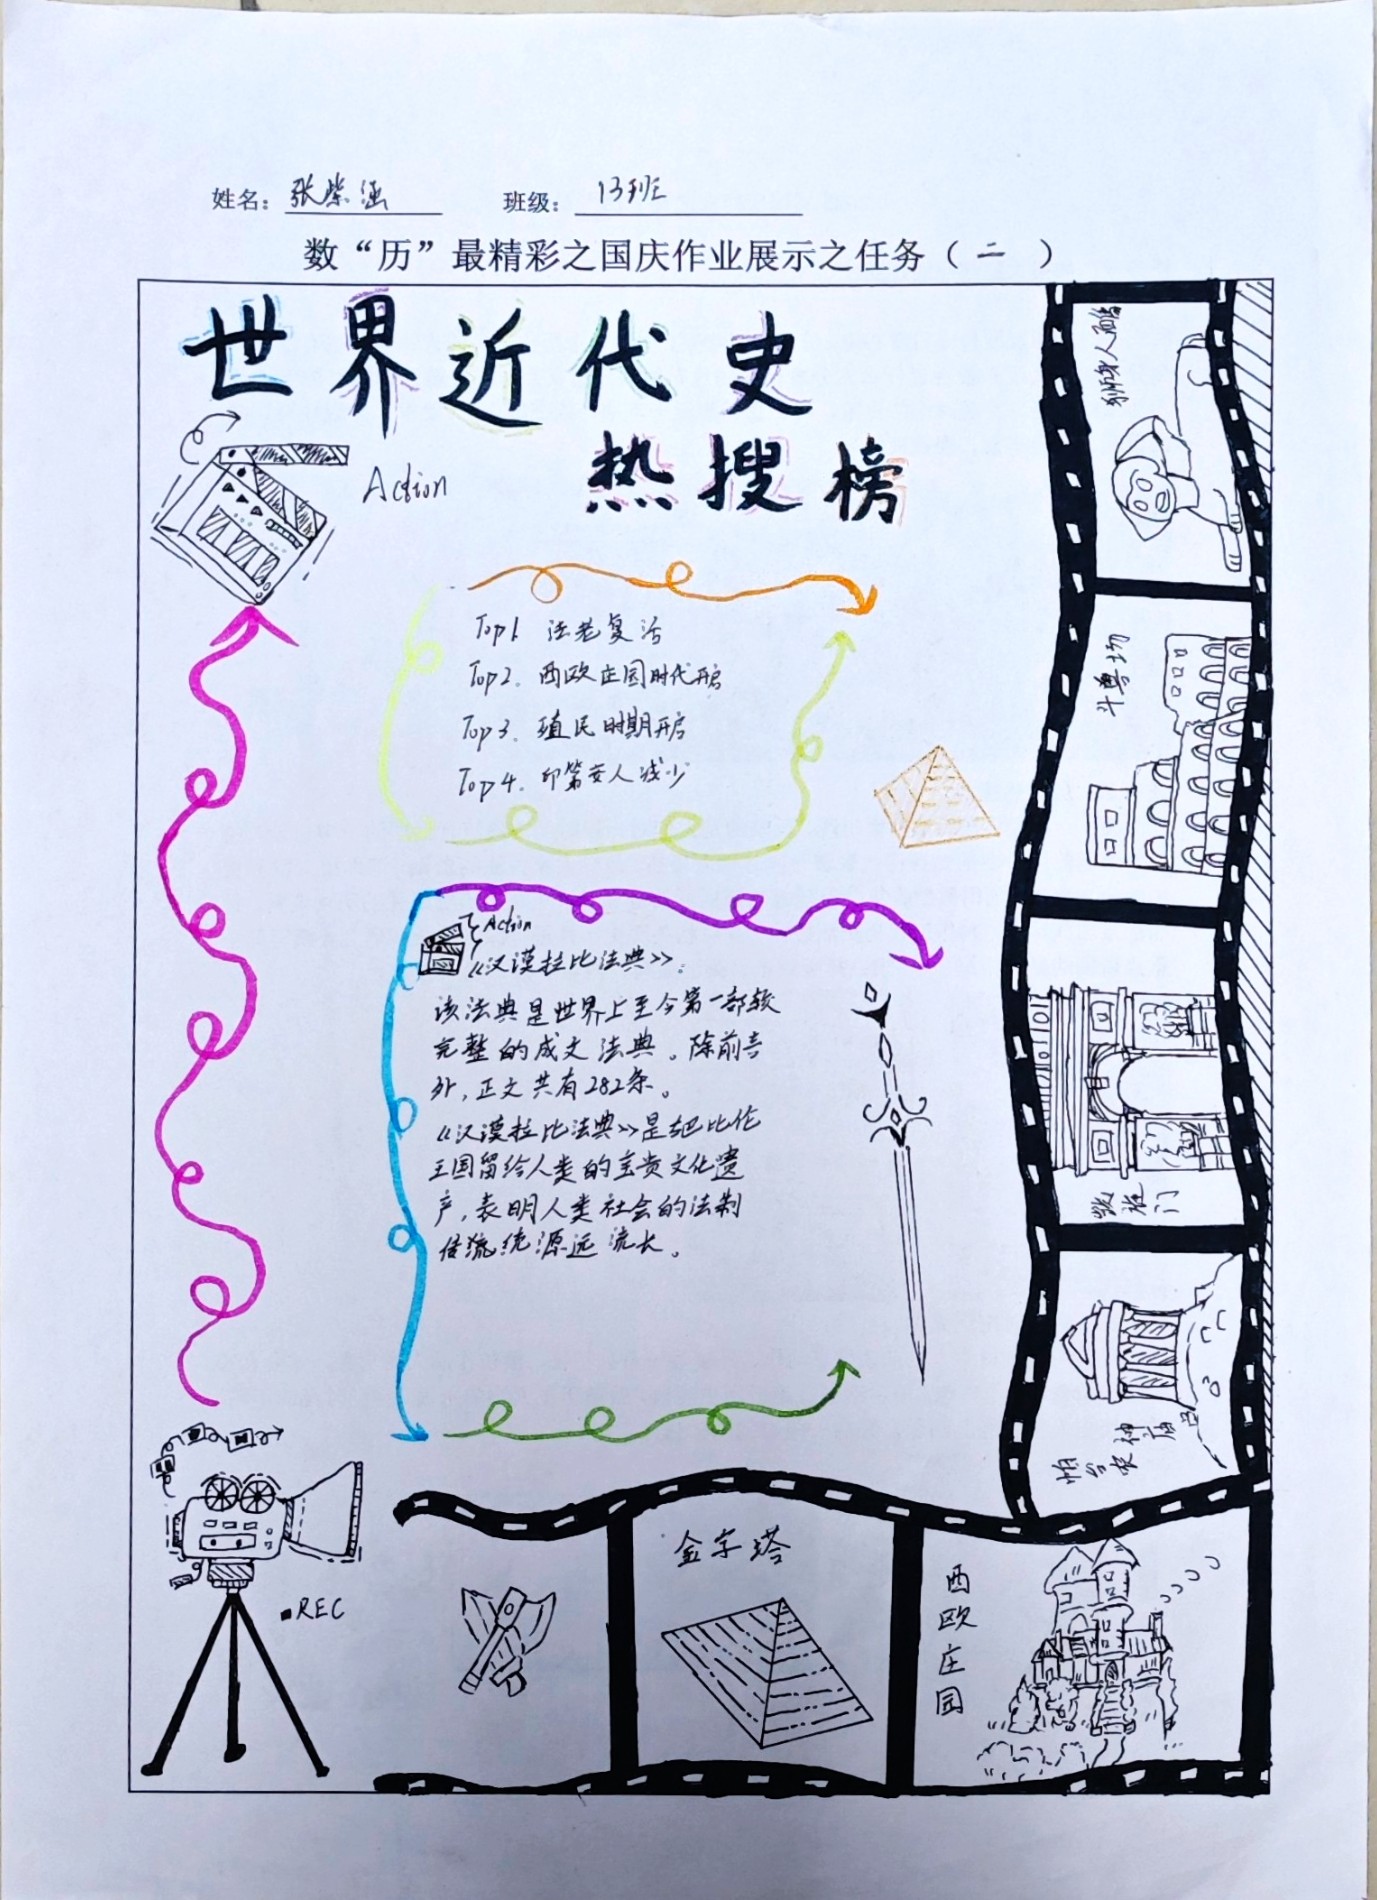 姓名：张紫涵 班级：13班
数“历”最精彩之国庆作业展示之任务（二）
世界近代史
热搜榜
Action
Top1 法老复活
Top2. 西欧庄园时代开启
Top3. 殖民时期开启
Top4. 印第安人减少
Action
《汉漠拉比法典》：
该法典是世界上至今第一部较
完整的成文法典。除前言
外，正文共有282条。
《汉漠拉比法典》是巴比伦
王国留给人类的宝贵文化遗
产，表明人类社会的法制
传统源远流长。
狮身人面像
斗兽场
凯旋门
帕特农神庙
REC
金字塔
西欧庄园